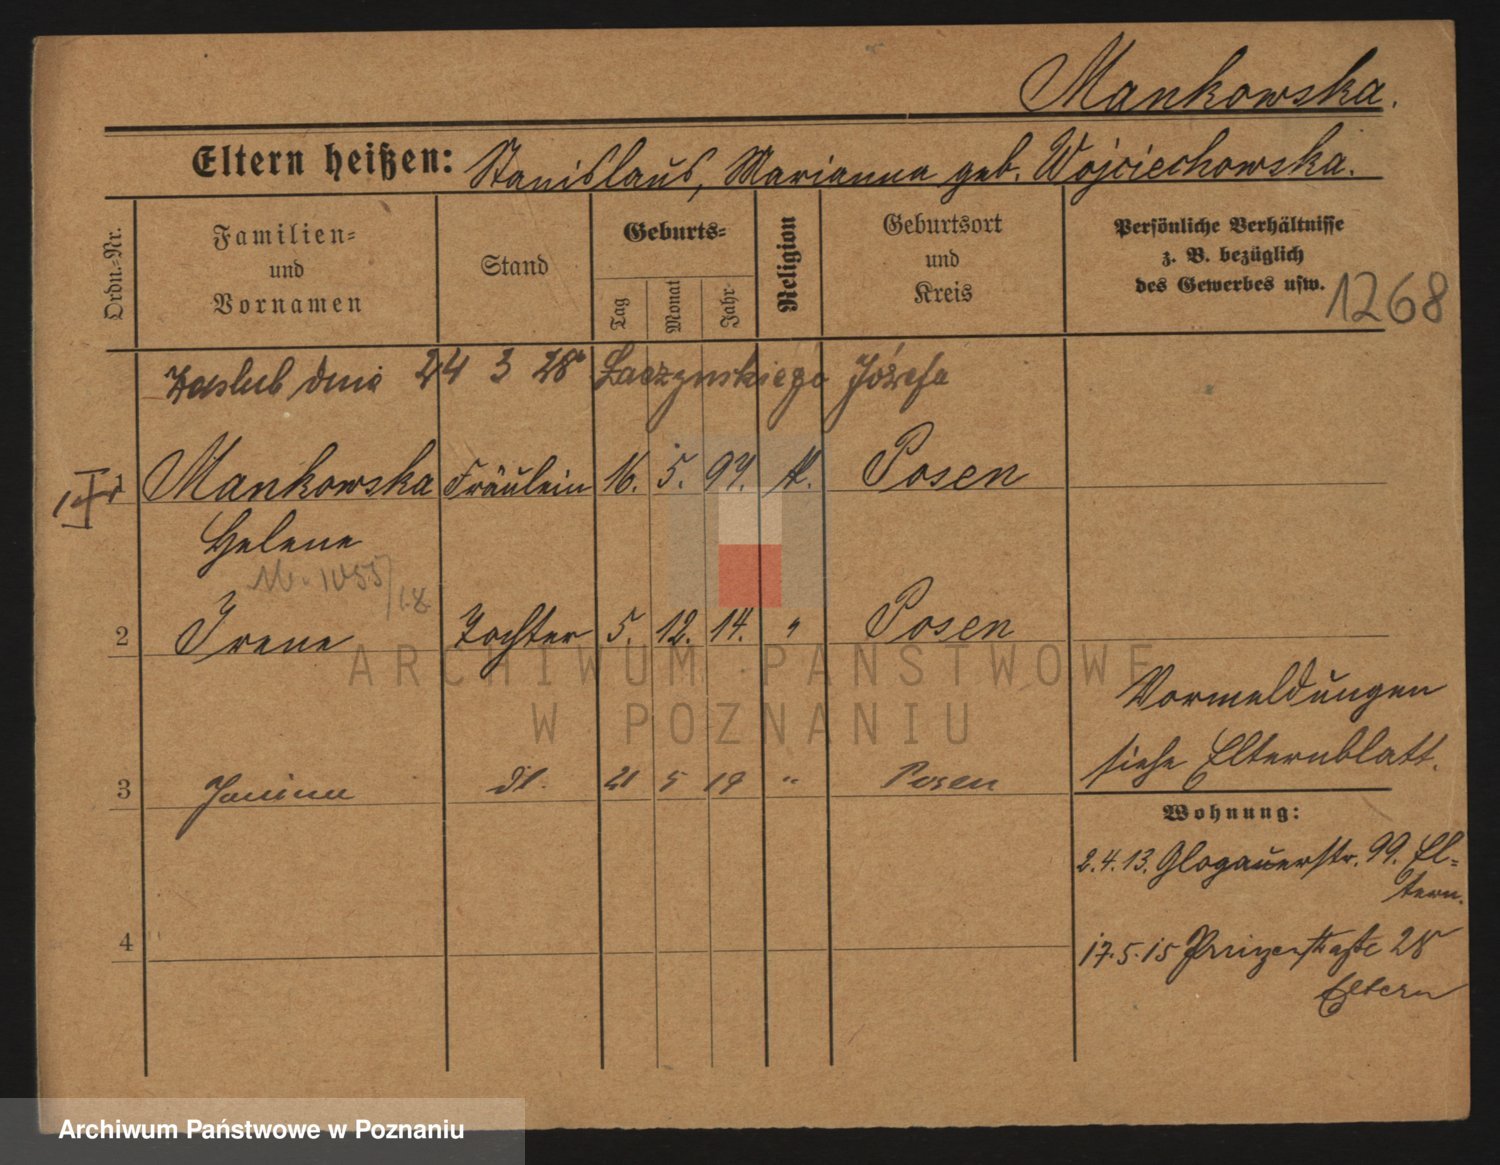 Mankowska.
Eltern heißen: Stanislaus, Marianna geb. Wojciechowska.
Ordn.=Nr.
Familien=
und
Vornamen
Stand
Geburts=
Tag
Monat
Jahr
Religion
Geburtsort
und
Kreis
Persönliche Verhältnisse
z. B. bezüglich
des Gewerbes usw.
1268
zaslub dnia 24 3 28 Laczynskiego Józefa
1 Mankowska Fräulein 16. 5. 94. k. Posen
Helene
2 Irene Tochter 5. 12. 14. " Posen
Vormeldungen
siehe Elternblatt.
3 Janina dt. 21 5 19 " Posen
Wohnung:
2.4.13. Glogauerstr. 99. El=
tern.
4
17.5.15 Prinzenstraße 28
Eltern
ARCHIWUM PAŃSTWOWE
W POZNANIU
Archiwum Państwowe w Poznaniu